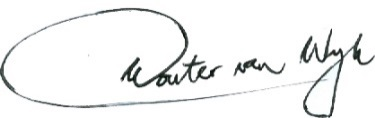 Wouter van Wyk